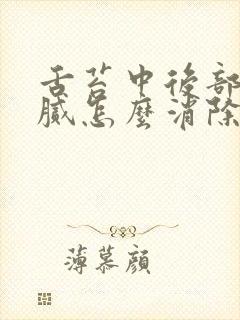 舌苔中後部
膩怎麼消除
薄慕顏